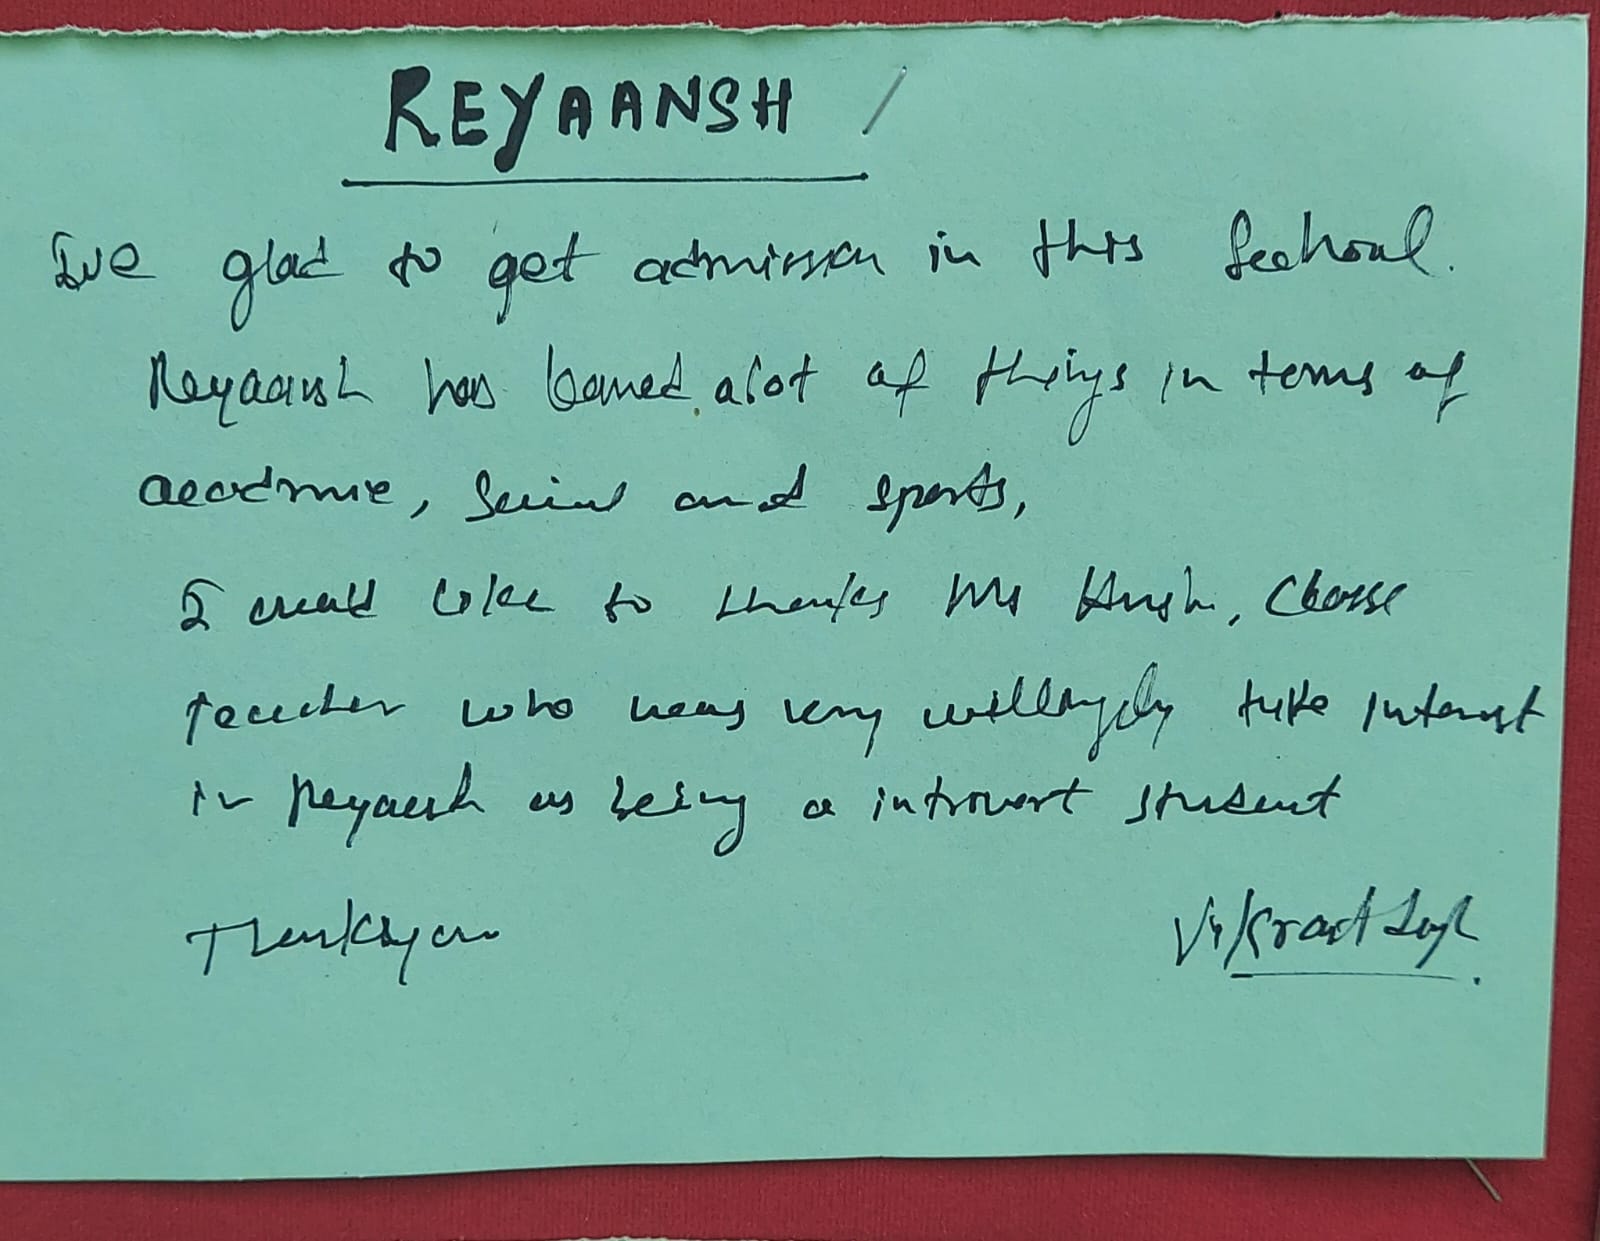 REYAANSH
I've glad to get admission in this School.
Reyaansh has learned alot of things in terms of
academic, Social and sports,
I would like to thanks Ms class
teacher who was very willingly take interest
in Reyaansh as being a introvert student
Thankyou
Vikrant Singh